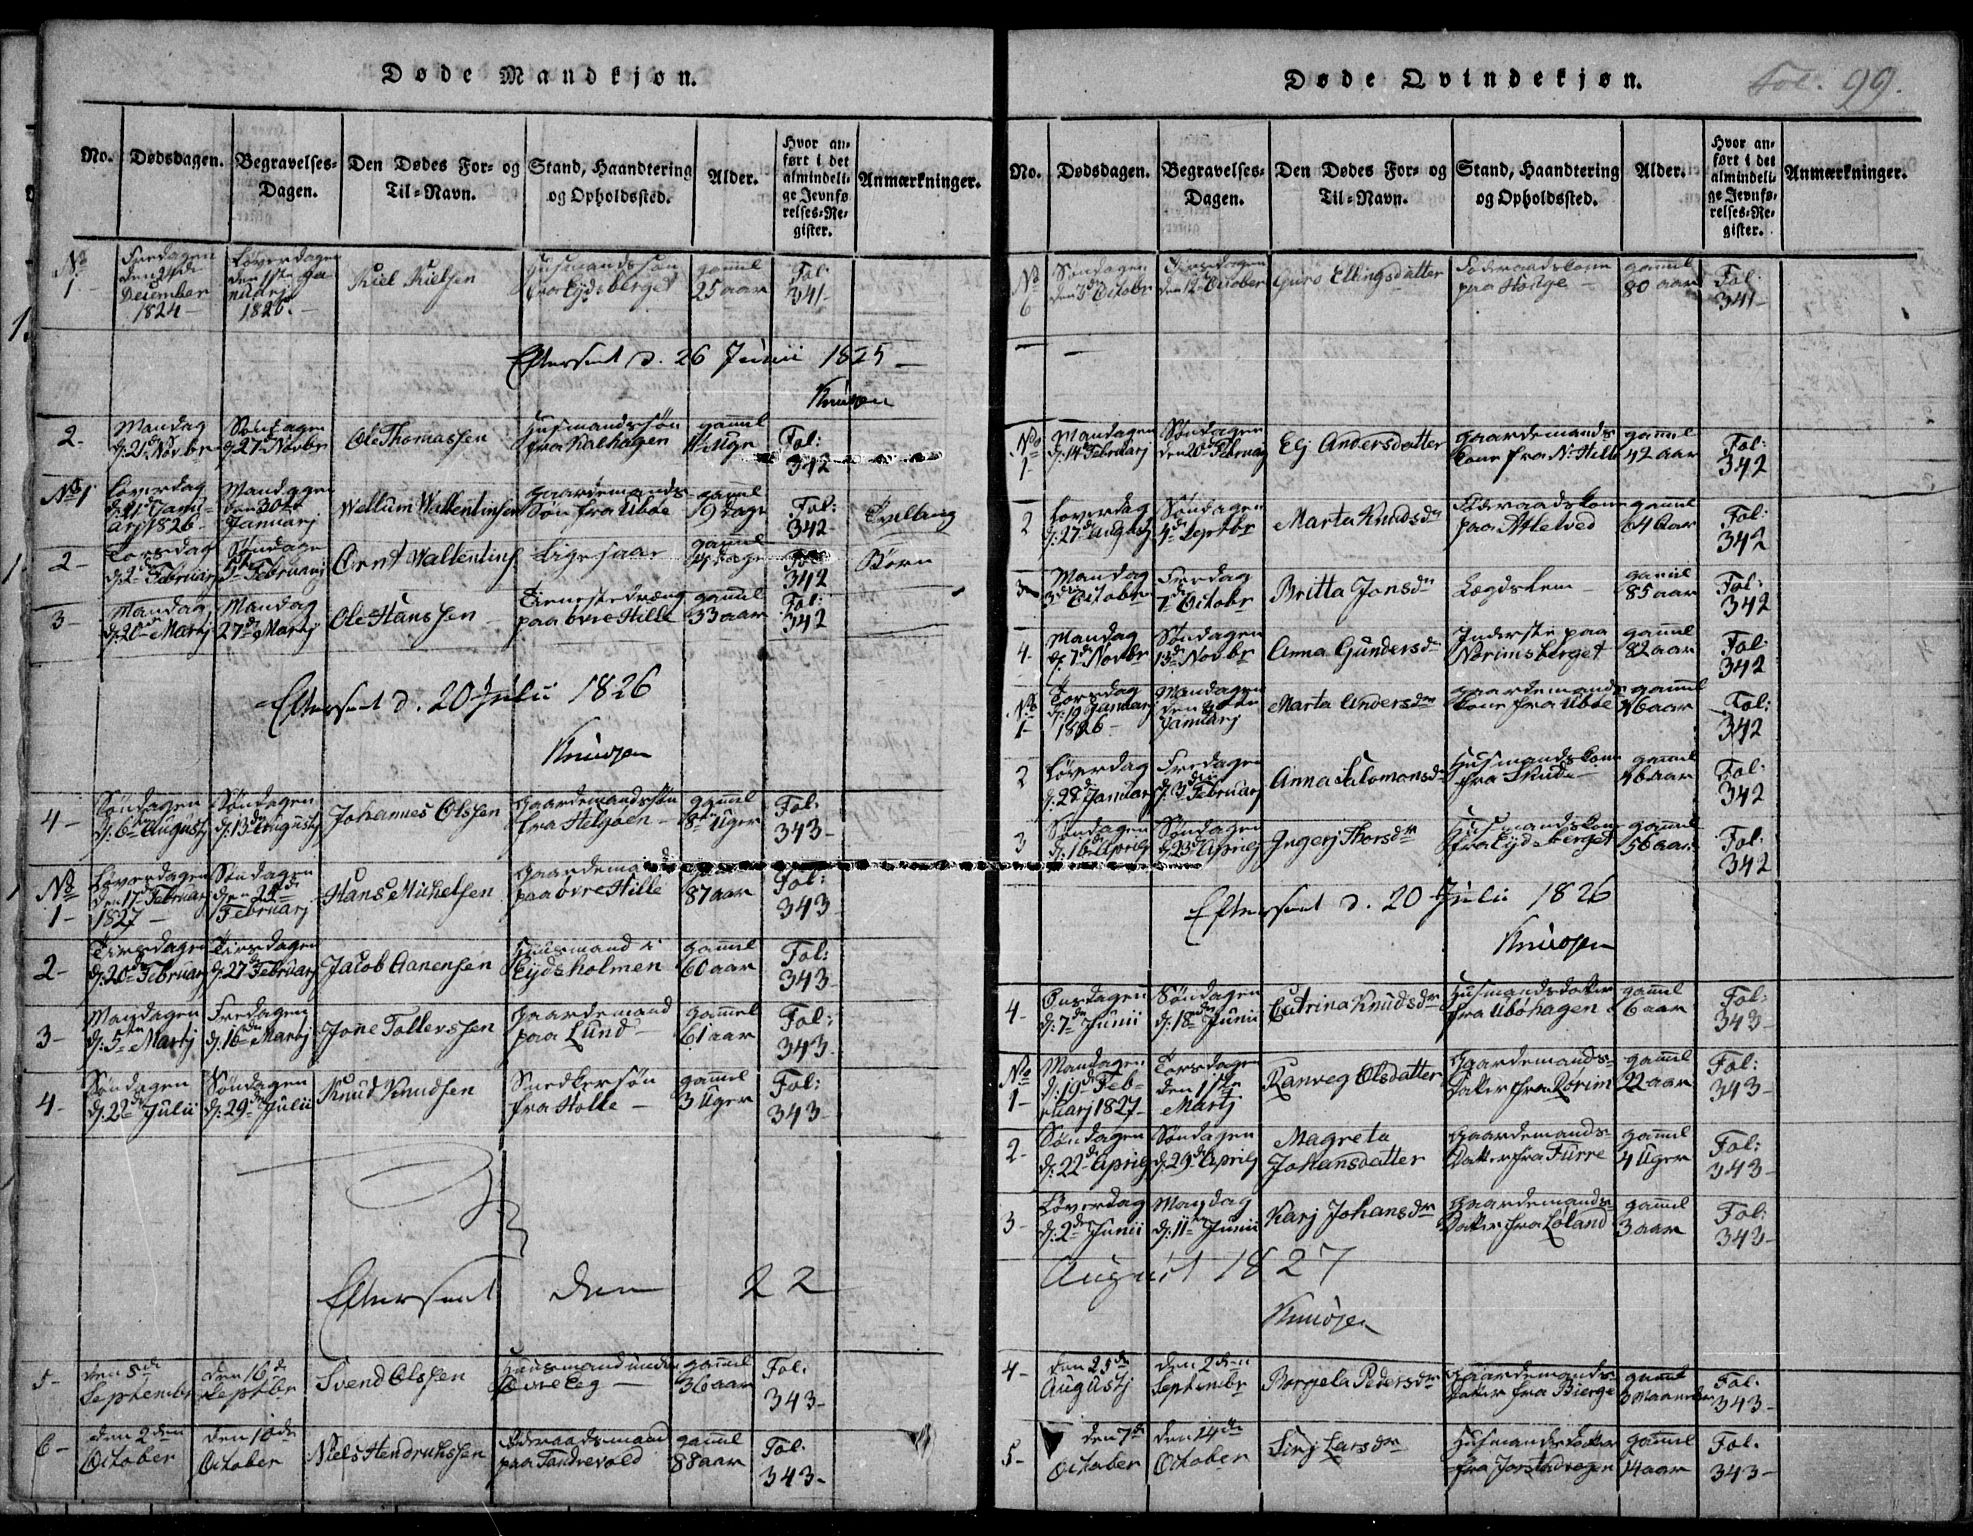 Døde Mandkjøn.
No. Dødsdagen. Begravelses-Dagen. Den Dødes For- og Til-Navn. Stand, Haandtering og Opholdssted. Alder. Hvor anført i det almindelige Jevnførelses-Register. Anmærkninger.
No 1 Fredagen den 24de December 1824 Løverdagen den 1ste Januarj 1825 Kiel Kielsen Husmandssøn fra Eydsberget gamel 25 aar Fol: 341
Eftersent d. 26 Junii 1825
Knudsen
2 Mandag d: 21de Novbr Søndagen d 27de Novbr Ole Thomassen Husmandssøn fra Kalhagen gamel Uge Fol: 342
No 1 Løverdag d: 21de Januarj 1826 Mandagen den 30te Januarj Wellum Wallentinsen Gaardemands Søn fra Ubøe gamel 9 dage Fol: 342 Tvelling
2 Torsdag d: 2de Februarj Søndagen 5te Februarj Arnt Wallentins Ligesaa gamel dage Fol: 342 Børn
3 Mandag d: 20de Martj Mandag 27de Martj Ole Hanssen Tienestedreng paa øvre Hille gamel 33 aar Fol: 342
Eftersent d. 20 Julii 1826
Knudsen
4 Søndagen d: 6te Augustj Søndagen d: 13de Augustj Johannes Olsen Gaardemandssøn fra Helgøen gamel 8te Uger Fol. 343
No 1 Løverdagen den 17de Februarj 1827 Søndagen den 25de Februarj Hans Michelsen Gaardemand paa øvre Hille 87 aar Fol: 343
2 Tirsdagen d: 20de Februarj Tirsdagen d: 27de Februarj Jacob Aanensen Huusmand i Eydsholmen gamel 60 aar Fol: 343
3 Mandagen d: 5te Martj Fredagen d: 16de Martj Jone Tollerssen Gaardemand paa Lund gamel 61 aar Fol: 343
4 Søndagen d: 22de Julii Søndagen d: 29de Julii Knud Knudsen Snedkersøn fra Holle gamel 3 Uger Fol: 343
Eftersent den 22
5 den 5de September den 16de Septbr Svend Olssen Huusmand under Øvre Eeg gamel 36 aar Fol. 343
6 den 2den October den 10de October Niels Hendrichssen Føderaadsmand paa Tandrevold gamel 88 aar Fol. 343
Døde Qvindekjøn.
Fol. 99.
No. Dødsdagen. Begravelses-Dagen. Den Dødes For- og Til-Navn. Stand, Haandtering og Opholdssted. Alder. Hvor anført i det almindelige Jevnførelses-Register. Anmærkninger.
No 6 Søndagen den 3de Octobr Tirsdagen den 12te October Guro Ellingsdatter Føderaadskone paa Hodge gamel 80 aar Fol 341
No 1 Mandagen d: 14de Februarj Søndagen den 20de Februarj Elj Andersdatter Gaardemands Kone fra N. Hille gamel 42 aar Fol: 342
2 Løverdag d: 27de Augustj Søndagen 4de Septbr Marta Knudsdr Føderaadskone paa Attelved gamel 64 aar Fol: 342
3 Mandag 3die Octobr Fredag 7de Octobr Britta Jonsdr Lægdslem gamel 85 aar Fol: 342
4 Mandag d: 7de Novbr Søndagen 13de Novbr Anna Gundersdr Inderste paa Norimsberget gamel 82 aar Fol 342
No 1 Torsdag d: 19 Januarj 1826 Mandagen den Januarj Marta Andersdr Gaardemands Kone fra Ubøe gamel 46 aar Fol: 342
2 Løverdag d: 28de Januarj Fredagen d: 3de Februarj Anna Salomonsdr Husmandskone fra Skude gamel 46 aar Fol: 342
3 Søndagen d: 16de Aprilj Søndagen d: 23de Aprilj Ingerj Thorsdr Husmandskone fra Eydsberget gamel 56 aar Fol: 342
Eftersent d. 20 Julii 1826
Knudsen
4 Onsdagen d: 7de Junii Søndagen d: 18de Junii Catrina Knudsdr Husmandsdatter fra Ubøhagen gamel 6 aar Fol: 343
No 1 Mandagen d: 19de Februarj 1827 Torsdagen den 1ste Martj Ranveg Olsdatter Gaardemands Datter fra Rørim gamel 22 aar Fol: 343
2 Søndagen d: 22de Aprilj Søndagen d: 29de Aprilj Magreta Johansdatter Gaardemands Datter fra Furre gamel 4 Uger Fol: 343
3 Løverdag d: 2den Junii Mandag d: 11te Junii Karj Johansdr Gaardemands Datter fra Løland gamel 3 aar Fol: 343
August 1827
Knudsen
4 den 25de Augustj den 2den September Borgela Pedersdr Gaardemands Datter fra Bierge gamel 3 Maaneder Fol. 343
5 den 7de October den 14de October Sirj Larsdr Husmandsdatter fra gamel 14 aar Fol. 343